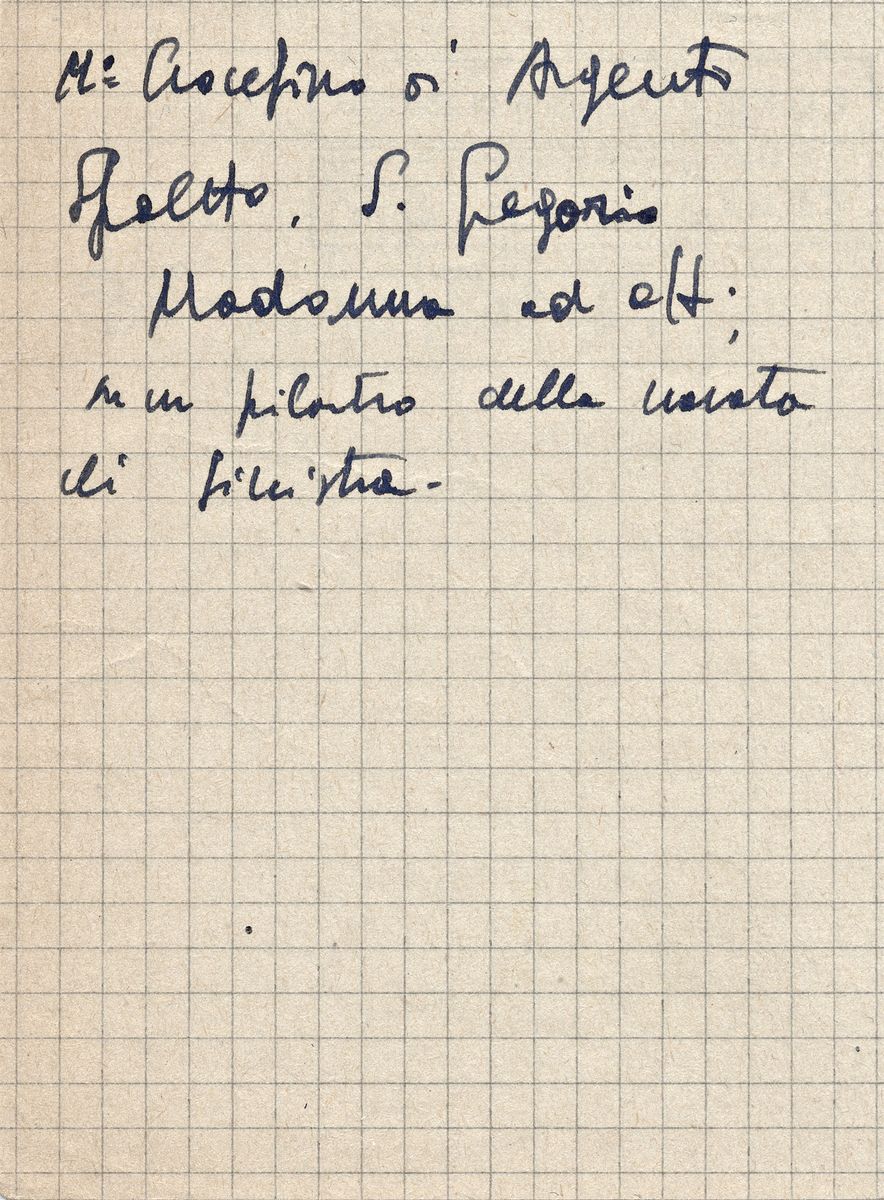 Mº Crocefisso d'Argento
Spoleto, S. Gregorio
Madonna ad aff.;
su un pilastro della navata
di sinistra-